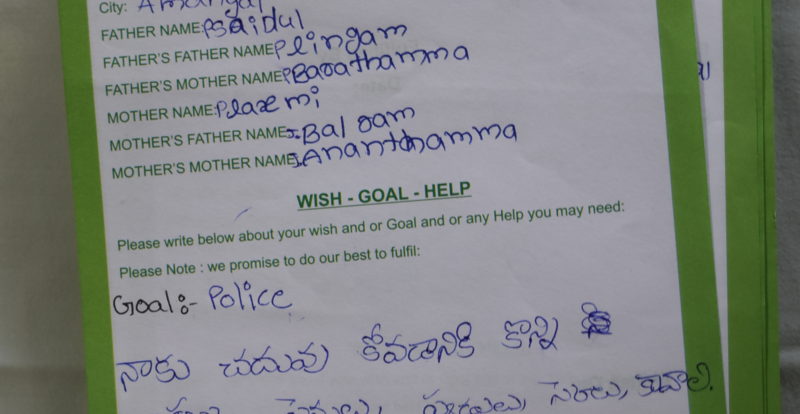 City: Amangal
FATHER NAME: P Saidul
FATHER'S FATHER NAME: P lingam
FATHER'S MOTHER NAME: P Barathamma
MOTHER NAME: P laxemi
MOTHER'S FATHER NAME: J. Bal ram
MOTHER'S MOTHER NAME: J. Ananthamma
WISH - GOAL - HELP
Please write below about your wish and or Goal and or any Help you may need:
Please Note : we promise to do our best to fulfil:
Goal:- Police
నాకు చదువు కోవడానికి కొన్ని
పెన్నులు, సెరలు, కావాలి.